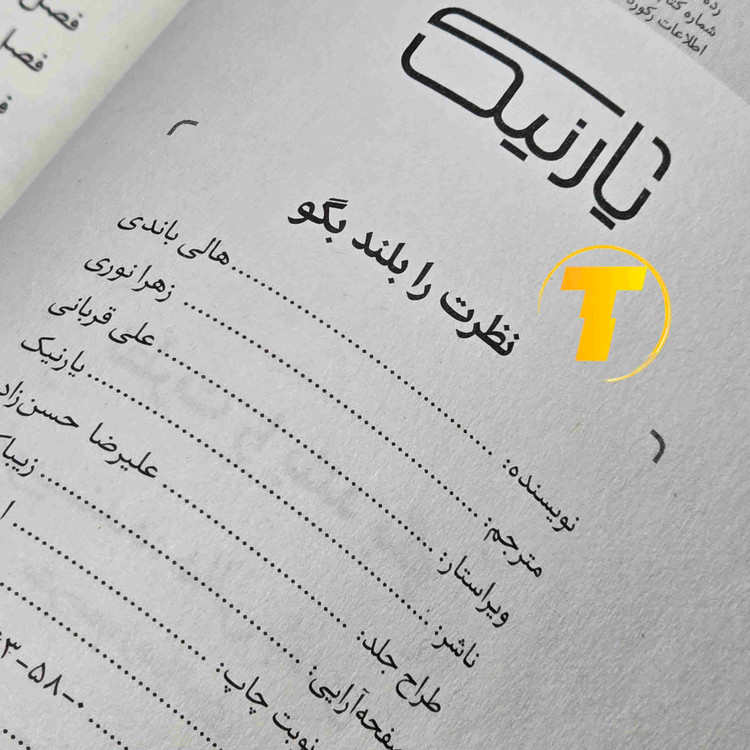 رده
شماره
اطلاعات رکورد
فصل
فصل
یارنیک
نظرت را بلند بگو
T
نویسنده:......هالی باندی
مترجم:......زهرا نوری
ویراستار:......علی قربانی
ناشر:......یارنیک
طراح جلد:......علیرضا حسن‌زاد
صفحه‌آرایی:......زیبا
نوبت چاپ:......
۵۸-۰